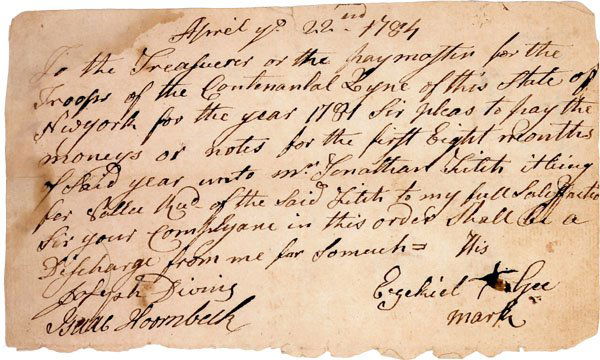 April ye 22nd 1784
To the Treasuerer or the paymaster for the
Troops of the Contenantal Lyne of this State of
Newyork for the year 1781 Sir pleas to pay the
moneys or notes for the first Eight months
of Said year unto mr Jonathan Fitch it being
for Vallu Recd of the Said Fitch to my full Satisfactio
Sir your Complyance in this order Shall be a
Discharge from me for Somuch = His
Joseph Divins Ezekiel X Gee
Isaac Hornbeck mark